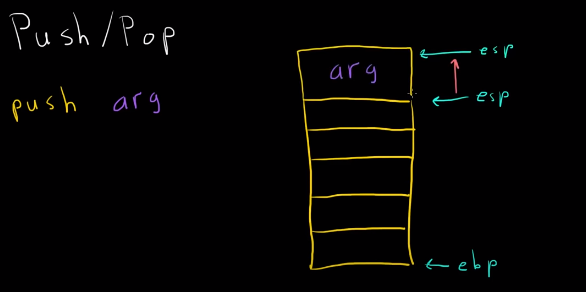 Push/Pop
push arg
arg
esp
esp
ebp